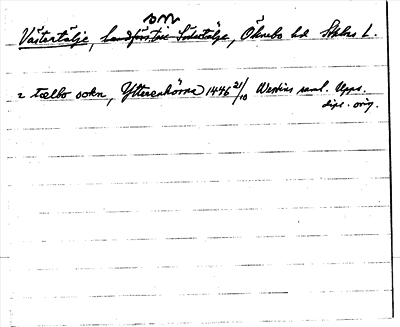 sn
Västertälje, landförs. t. Södertälje, Öknebo hd Sthlms l.
i tælbo sokn, Ytterenhörna 1446 21/10 Westins saml. Upps.
dipl. orig.